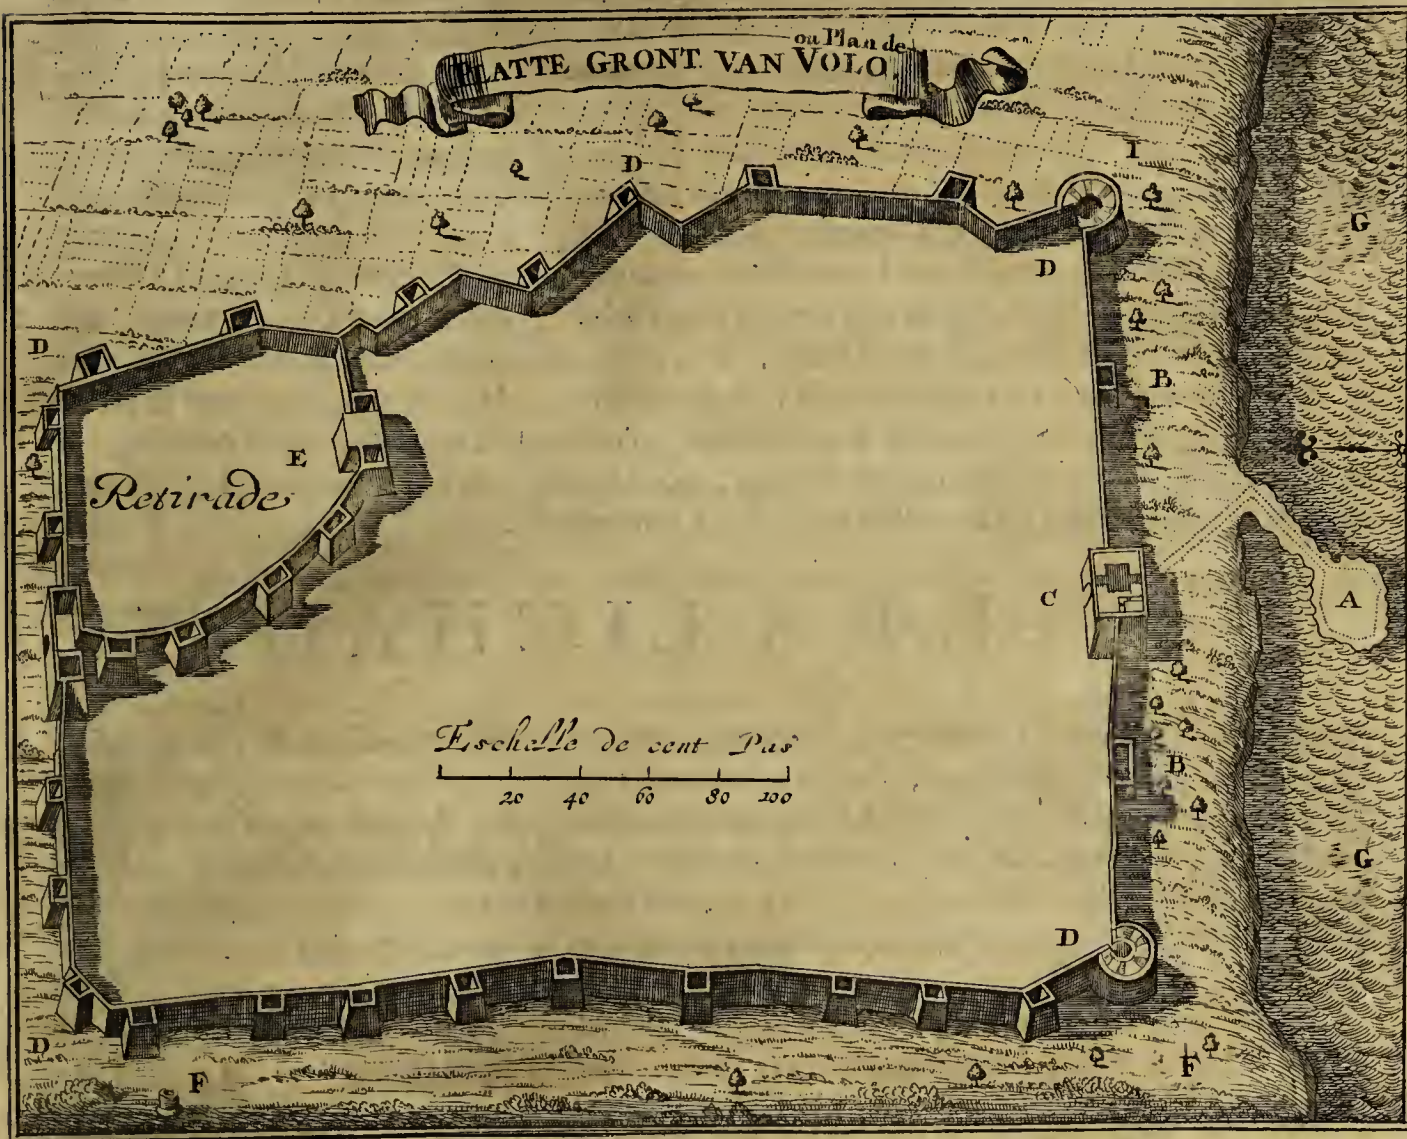 ou Plan de
PLATTE GRONT VAN VOLO
D
I
G
D
D
B
E
Retirade
C
A
Eschelle de cent Pas
20 40 60 80 100
B
G
D
D
F
F